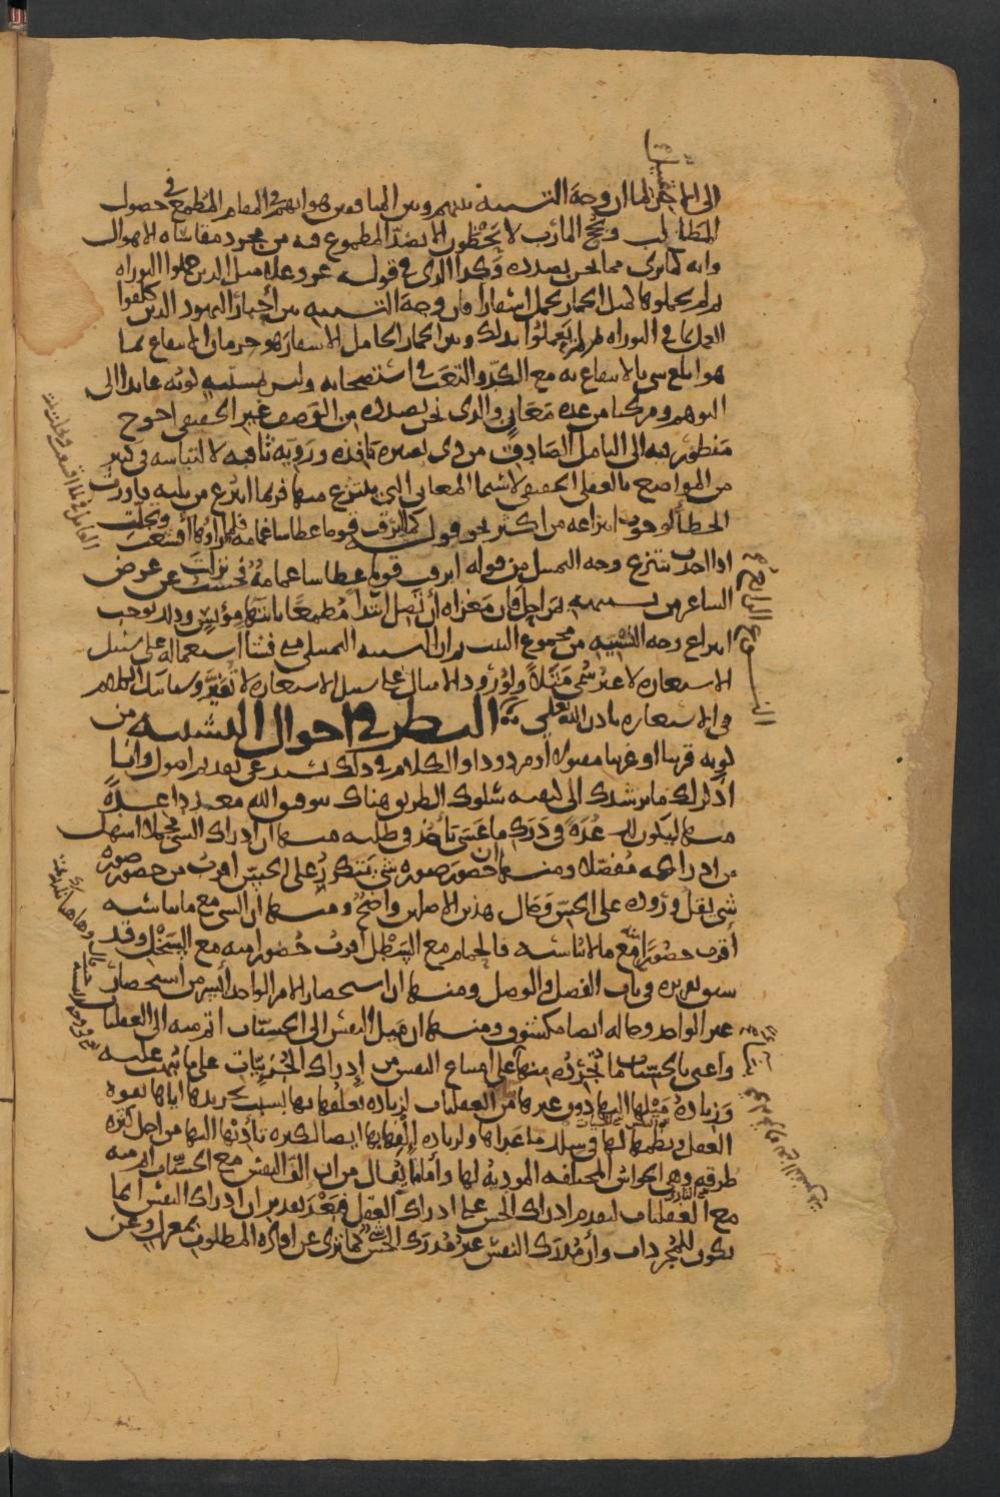 وجه التشبيه بينهم وبين المنافقين هو انهم في المقام المطمع في حصول
المطالب ونجح المآرب لا يحظون الا بضد المطموع فيه من مجرد مقاساة الاهوال
وانه كما ترى مما نحن بصدده وكذا الذي في قوله عز وعلا مثل الذين حملوا التوراه
ثم لم يحملوها كمثل الحمار يحمل اسفارا فان وجه التشبيه بين أحبار اليهود الذين كلفوا
العمل بما في التوراه ثم لم يعملوا بذلك وبين الحمار الحامل للاسفار هو حرمان الانتفاع بما
هو ابلغ شي بالانتفاع به مع الكد والتعب في استصحابه وليس بمشتبه كونه عايدا الى
التوهم ومركبا من عدة معاني والذي نحن بصدده من الوصف غير الحقيقي احوج
منظور فيه الى التامل الصادق من ذي بصيرة نافذه وروية ثاقبه لالتباسه في كثير
من المواضع بالعقلي الحقيقي لا سيما المعاني التي ينتزع منها فربما انتزع من ثلثه فاورث
الخطأ لوجوب انتزاعه من اكثر نحو قوله كما ابرقت قوما عطاشا غمامة فلما رأوها أقشعت وتجلت
اذا اخذت تنتزع وجه التمثيل من قوله ابرقت قوما عطاشا غمامة فحسب نزلت عن غرض
الشاعر من تشبيهه بمراحل فان مغزاه أن يصل ابتدأ مطمعا بانتهاء مؤيس وذلك يوجب
انتزاع وجه التشبيه من مجموع البيت ثم ان التشبيه التمثيلي متى فشا استعماله على سبيل
الاستعارة لا غير سمي مثلا ولورود الامثال على سبيل الاستعاره لا تغير وسياتيك الكلام
في الاستعاره باذن الله تعالى النظر في احوال التشبيه من
كونه قريبا او غريبا مقبولا او مردودا والكلام في ذلك يستدعي تقديم اصول وانا
اذكر لك ما يرشدك الى كيفية سلوك الطريق هناك بتوفيق الله معددا عدة
منها ليكون لك عدة في درك ما عسى تأخذ في طلبه منها ان ادراك الشي مجملا اسهل
من ادراكه مفصلا ومنها ان حضور صورة شي تتكرر على الحس اقرب من حضور صورة
شي يقل وروده على الحس وحال هذين الاصلين واضح ومنها ان الشي مع ما يناسبه
أقرب حضورا منه مع ما لا يناسبه فالحمام مع السطل اقرب حضورا منه مع السخل وقد
سبق تقريره في باب الفصل والوصل ومنها ان استحضار الامر الواحد أيسر من استحضار
غير الواحد وحاله ايضا مكشوف ومنها ان ميل النفس الى الحسيات اتم منه الى العقليات
واعني بالحسيات ما تجرده منها على امتناع النفس من إدراك الجزئيات على ما نبهت عليه
وزيادة ميلها اليها دون غيرها من العقليات لزيادة تعلقها بها بسبب تجريدها اياها بقوة
العقل ونظمها لها في سلك ما عداها ولزيادة إلفها بها ايضا لكثره تأديها اليها من اجل كثرة
طرقه وهي الحواس المختلفه المودية لها وأما ما يقال من ان الف النفس مع الحسيات اتم منه
مع العقليات لتقدم ادراك الحس على ادراك العقل فبعد تقدير ان ادراك النفس انما
يكون للمجردات وان مدرك النفس غير مدرك الحس كما ترى عن افادة المطلوب بمعزل وعن